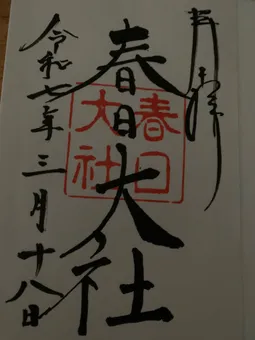 奉拝
春日大社
春日大社
令和七年三月十八日